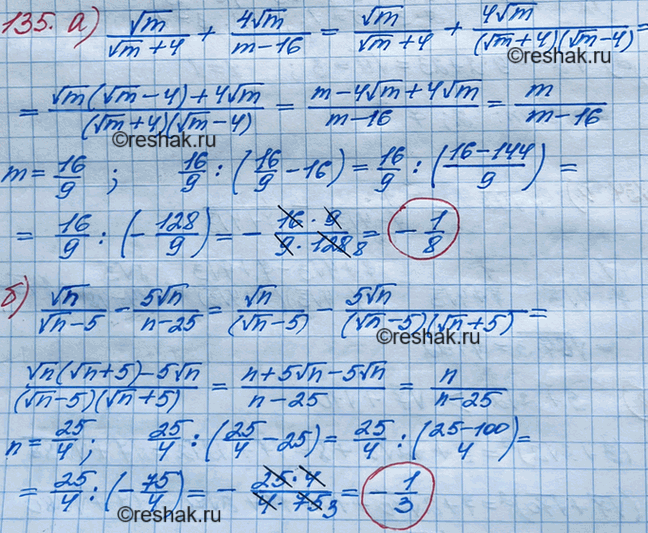 135. а) √m/(√m+4) + 4√m/(m−16) = √m/(√m+4) + 4√m/((√m+4)(√m−4)) =
©reshak.ru
= (√m(√m−4)+4√m)/((√m+4)(√m−4)) = (m−4√m+4√m)/(m−16) = m/(m−16)
©reshak.ru
m = 16/9 ; 16/9 : (16/9 − 16) = 16/9 : ((16−144)/9) =
= 16/9 : (−128/9) = − (16·9)/(9·128 8) = −1/8
©reshak.ru
б) √n/(√n−5) − 5√n/(n−25) = √n/(√n−5) − 5√n/((√n−5)(√n+5)) =
©reshak.ru
(√n(√n+5)−5√n)/((√n−5)(√n+5)) = (n+5√n−5√n)/(n−25) = n/(n−25)
n = 25/4 ; 25/4 : (25/4 − 25) = 25/4 : ((25−100)/4) =
= 25/4 : (−75/4) = − (25·4)/(4·75 3) = −1/3
©reshak.ru